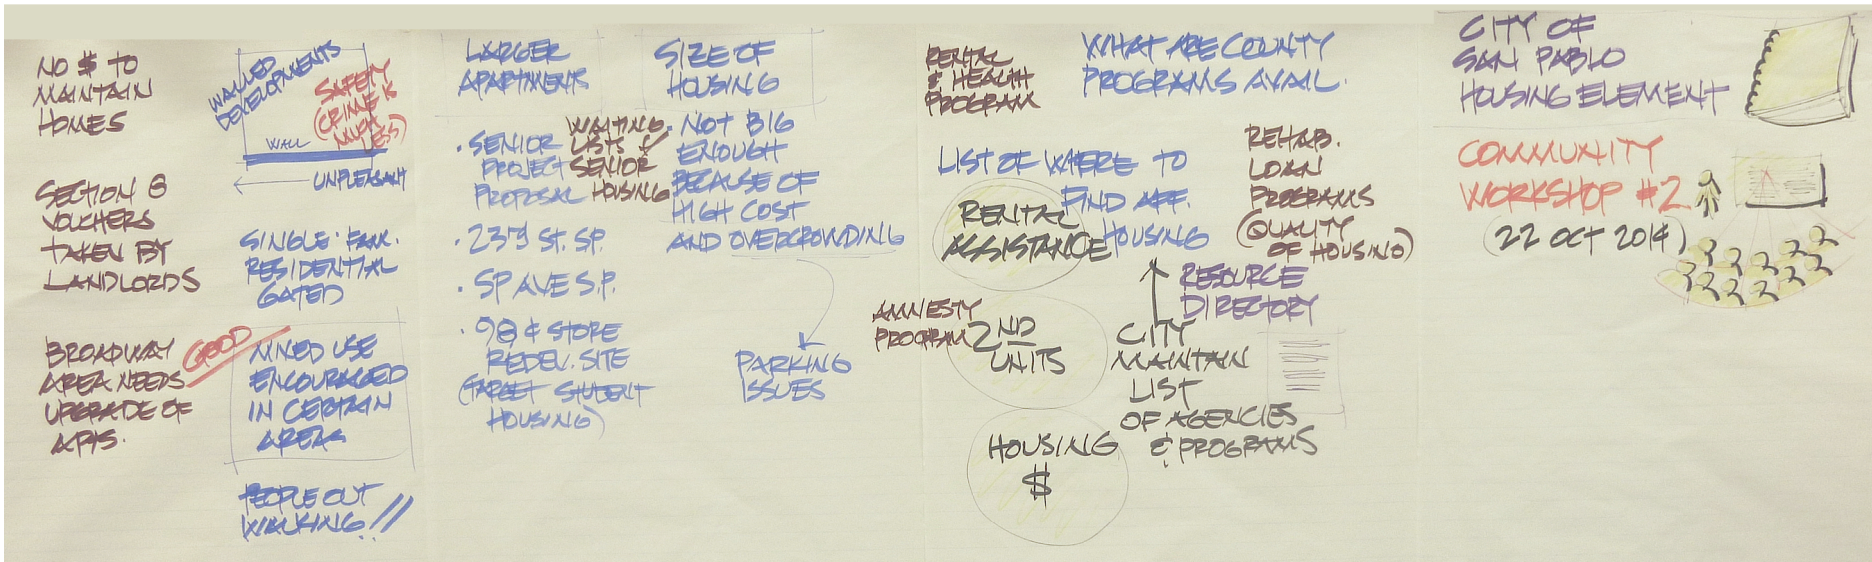 NO $ TO
MAINTAIN
HOMES
SECTION 8
VOUCHERS
TAKEN BY
LANDLORDS
BROADWAY
AREA NEEDS
UPGRADE OF
APTS.
GOOD
WALLED
DEVELOPMENTS
SAFETY
(CRIME IS
MUCH
LESS)
WALL
UNPLEASANT
SINGLE FAM.
RESIDENTIAL
GATED
MIXED USE
ENCOURAGED
IN CERTAIN
AREAS
PEOPLE OUT
WALKING!!
LARGER
APARTMENTS
• SENIOR
PROJECT
PROPOSAL
WAITING
LISTS
SENIOR
HOUSING
• 23RD ST. SP.
• SP AVE S.P.
• 98¢ STORE
REDEV. SITE
(TARGET STUDENT
HOUSING)
SIZE OF
HOUSING
• NOT BIG
ENOUGH
BECAUSE OF
HIGH COST
AND OVERCROWDING
PARKING
ISSUES
RENTAL
& HEALTH
PROGRAM
WHAT ARE COUNTY
PROGRAMS AVAIL.
LIST OF WHERE TO
FIND AFF.
HOUSING
RENTAL
ASSISTANCE
REHAB.
LOAN
PROGRAMS
(QUALITY
OF HOUSING)
RESOURCE
DIRECTORY
AMNESTY
PROGRAM
2ND
UNITS
CITY
MAINTAIN
LIST
OF AGENCIES
& PROGRAMS
HOUSING
$
CITY OF
SAN PABLO
HOUSING ELEMENT
COMMUNITY
WORKSHOP #2
(22 OCT 2014)